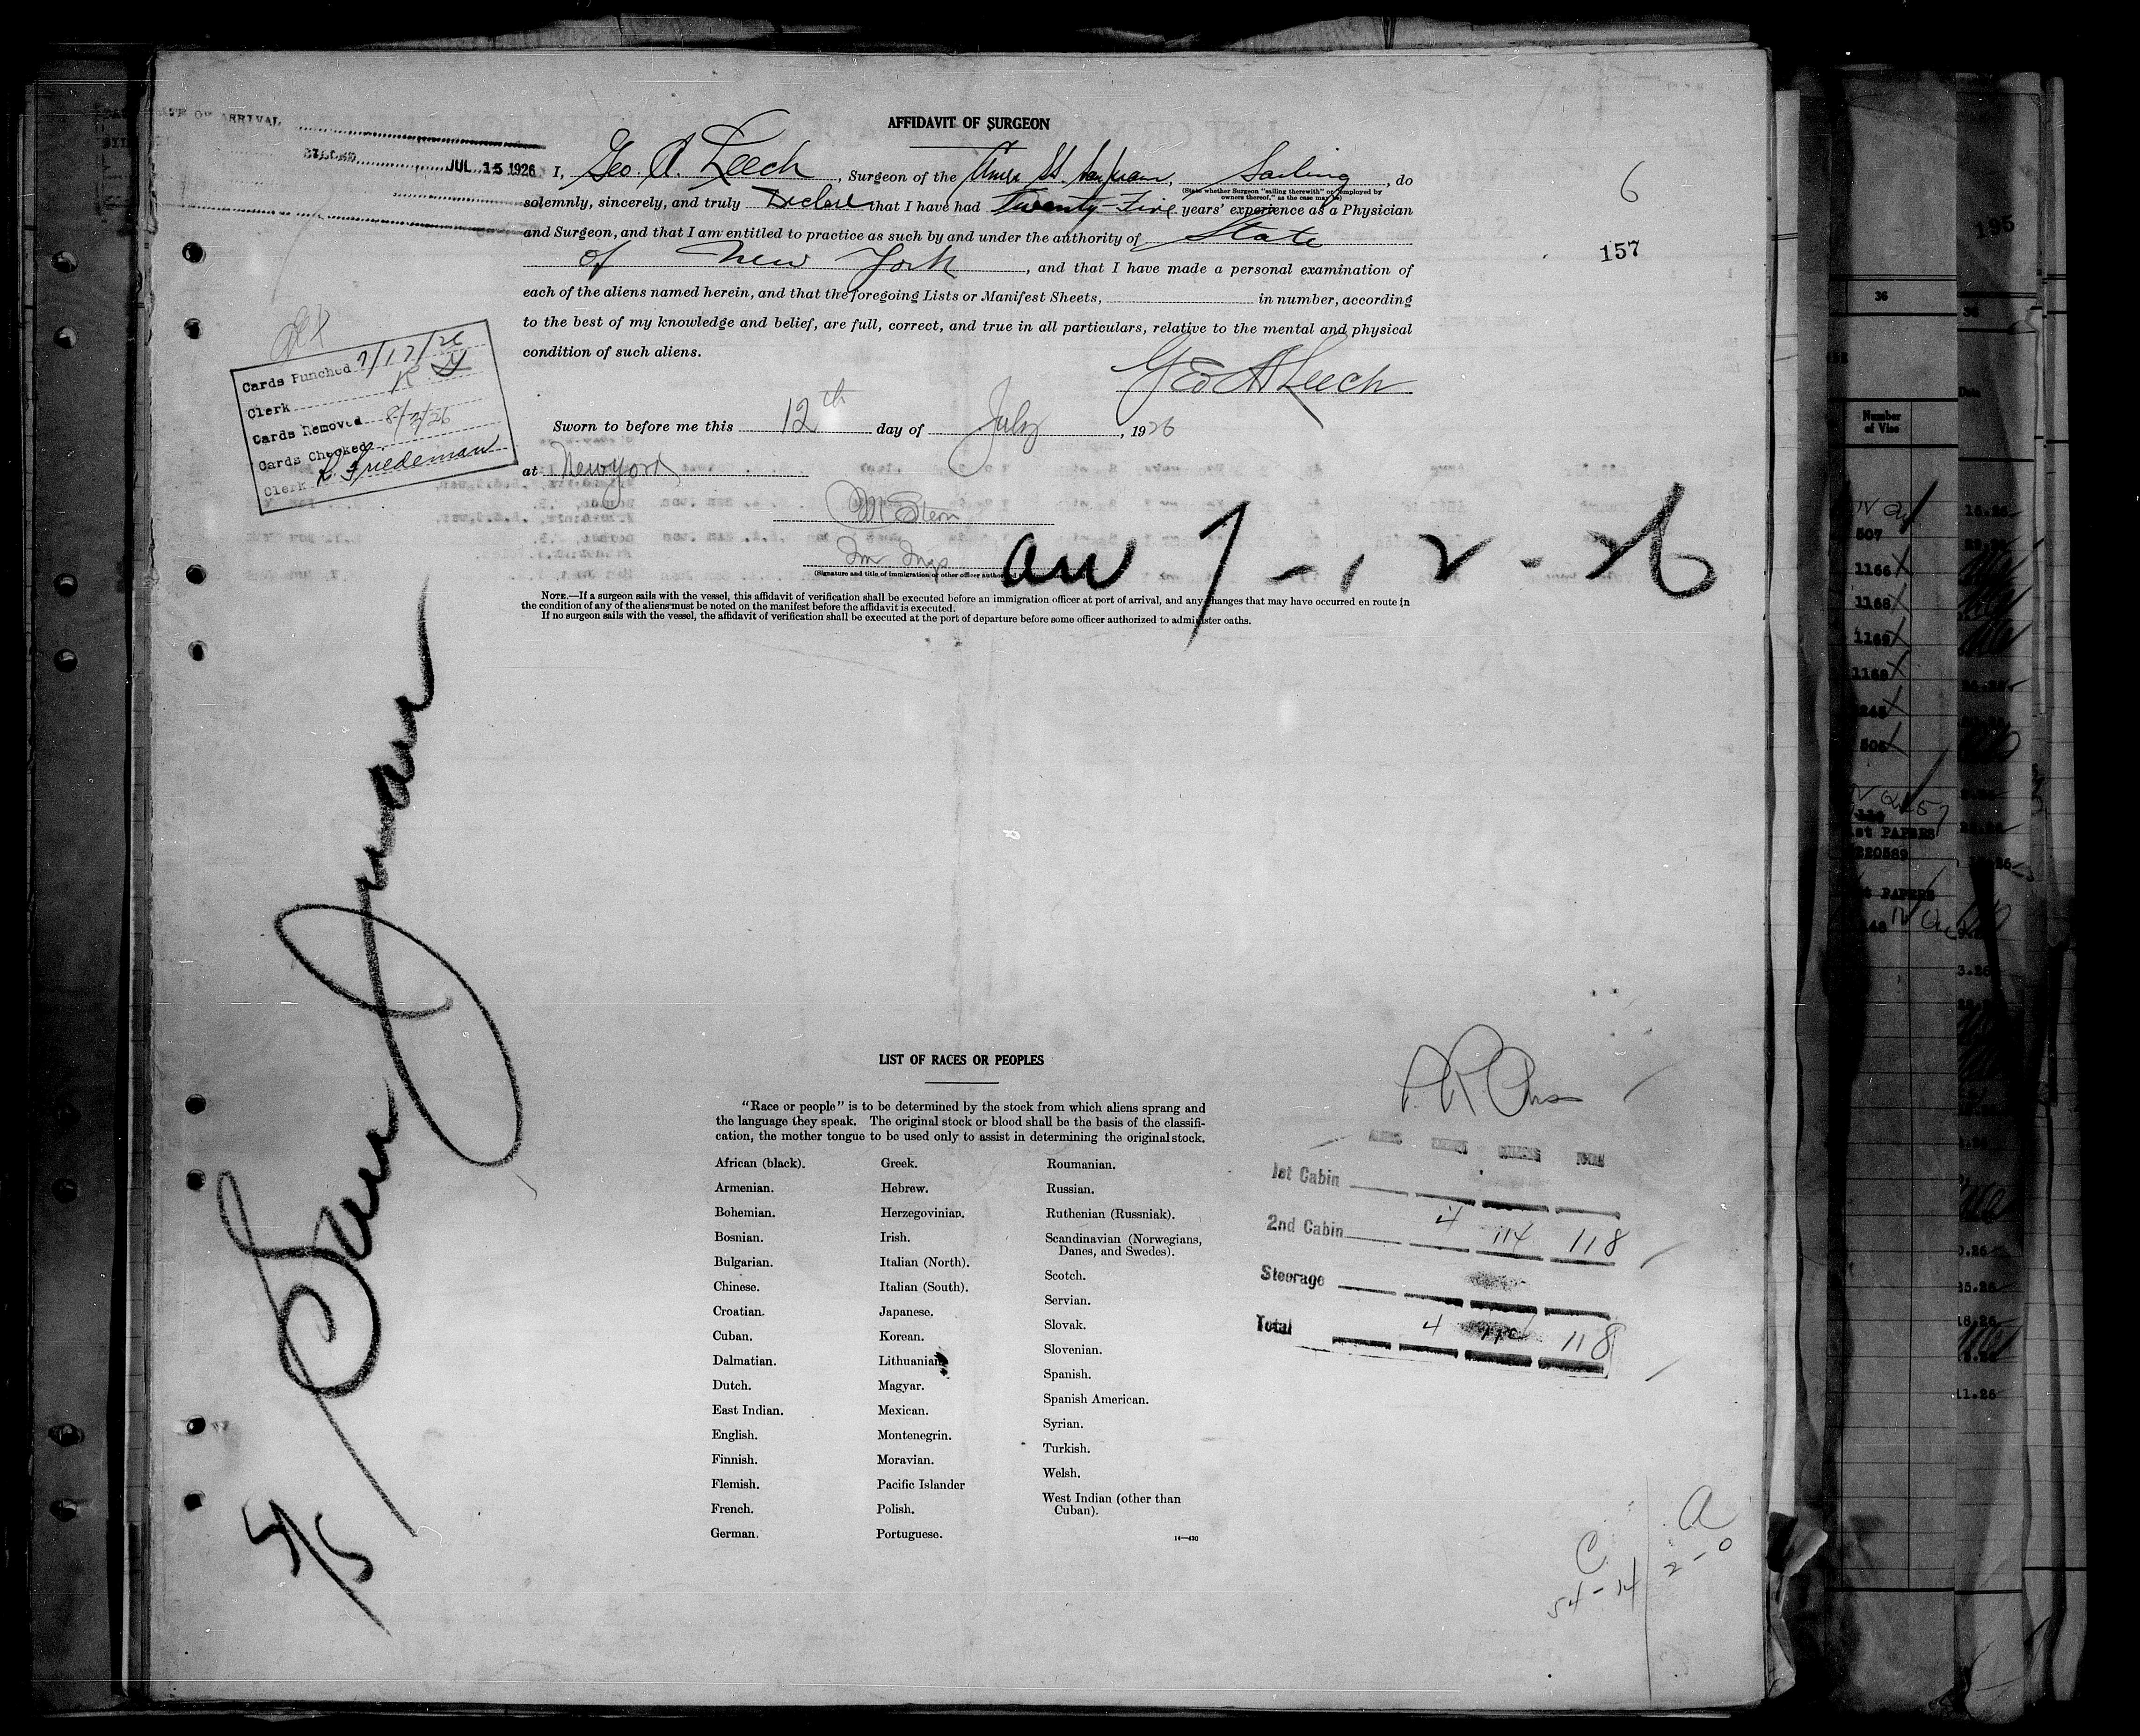 DATE OF ARRIVAL
JUL 15 1926
AFFIDAVIT OF SURGEON
I, Geo. A. Leech, Surgeon of the Amer SS. San Juan, Sailing, do
(State whether Surgeon "sailing therewith" or "employed by owners thereof," as the case may be)
solemnly, sincerely, and truly Declare that I have had Twenty-Five years' experience as a Physician
and Surgeon, and that I am entitled to practice as such by and under the authority of State
of New York, and that I have made a personal examination of
each of the aliens named herein, and that the foregoing Lists or Manifest Sheets, in number, according
to the best of my knowledge and belief, are full, correct, and true in all particulars, relative to the mental and physical
condition of such aliens.
Geo A Leech
Sworn to before me this 12th day of July, 1926
at New York
M Stern
Im Insp
(Signature and title of immigration or other officer
NOTE.—If a surgeon sails with the vessel, this affidavit of verification shall be executed before an immigration officer at port of arrival, and any changes that may have occurred en route in
the condition of any of the aliens must be noted on the manifest before the affidavit is executed.
If no surgeon sails with the vessel, the affidavit of verification shall be executed at the port of departure before some officer authorized to administer oaths.
6
157
Cards Punched 7/17/26
Clerk
Cards Removed 8/2/26
Cards Checked
Clerk Friedeman
7-12-26
San Juan
5/15
LIST OF RACES OR PEOPLES
"Race or people" is to be determined by the stock from which aliens sprang and
the language they speak. The original stock or blood shall be the basis of the classifi-
cation, the mother tongue to be used only to assist in determining the original stock.
African (black).
Armenian.
Bohemian.
Bosnian.
Bulgarian.
Chinese.
Croatian.
Cuban.
Dalmatian.
Dutch.
East Indian.
English.
Finnish.
Flemish.
French.
German.
Greek.
Hebrew.
Herzegovinian.
Irish.
Italian (North).
Italian (South).
Japanese.
Korean.
Lithuanian.
Magyar.
Mexican.
Montenegrin.
Moravian.
Pacific Islander
Polish.
Portuguese.
Roumanian.
Russian.
Ruthenian (Russniak).
Scandinavian (Norwegians,
Danes, and Swedes).
Scotch.
Servian.
Slovak.
Slovenian.
Spanish.
Spanish American.
Syrian.
Turkish.
Welsh.
West Indian (other than
Cuban).
14—430
1st Cabin
2nd Cabin 4 114 118
Steerage
Total 4 114 118
C
54-14
A
2-0
195
36
36
Date
Number
of Vise
507
1166
1168
1169
1169
245
505
1st PAPERS
220589
PAPERS